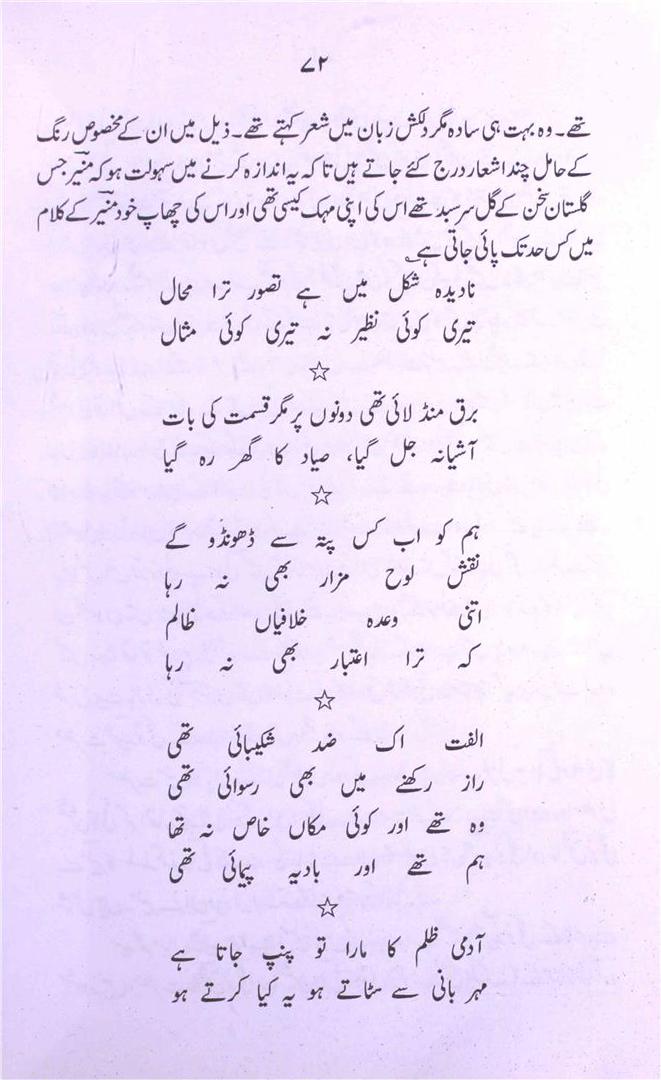 ۷۲
تھے۔ وہ بہت ہی سادہ مگر دلکش زبان میں شعر کہتے تھے۔ ذیل میں ان کے مخصوص رنگ
کے حامل چند اشعار درج کئے جاتے ہیں تا کہ یہ اندازہ کرنے میں سہولت ہو کہ منیرؔ جس
گلستان سخن کے گل سر سبد تھے اس کی اپنی مہک کیسی تھی اور اس کی چھاپ خود منیرؔ کے کلام
میں کس حد تک پائی جاتی ہے۔
نادیدہ شکل میں ہے تصور ترا محال
تیری کوئی نظیر نہ تیری کوئی مثال
☆
برق منڈلائی تھی دونوں پر مگر قسمت کی بات
آشیانہ جل گیا، صیاد کا گھر رہ گیا
☆
ہم کو اب کس پتہ سے ڈھونڈو گے
نقش لوح مزار بھی نہ رہا
اتنی وعدہ خلافیاں ظالم
کہ ترا اعتبار بھی نہ رہا
☆
الفت اک ضد شکیبائی تھی
راز رکھنے میں بھی رسوائی تھی
وہ تھے اور کوئی مکاں خاص نہ تھا
ہم تھے اور بادیہ پیمائی تھی
☆
آدی ظلم کا مارا تو پنپ جاتا ہے
مہربانی سے ستاتے ہو یہ کیا کرتے ہو